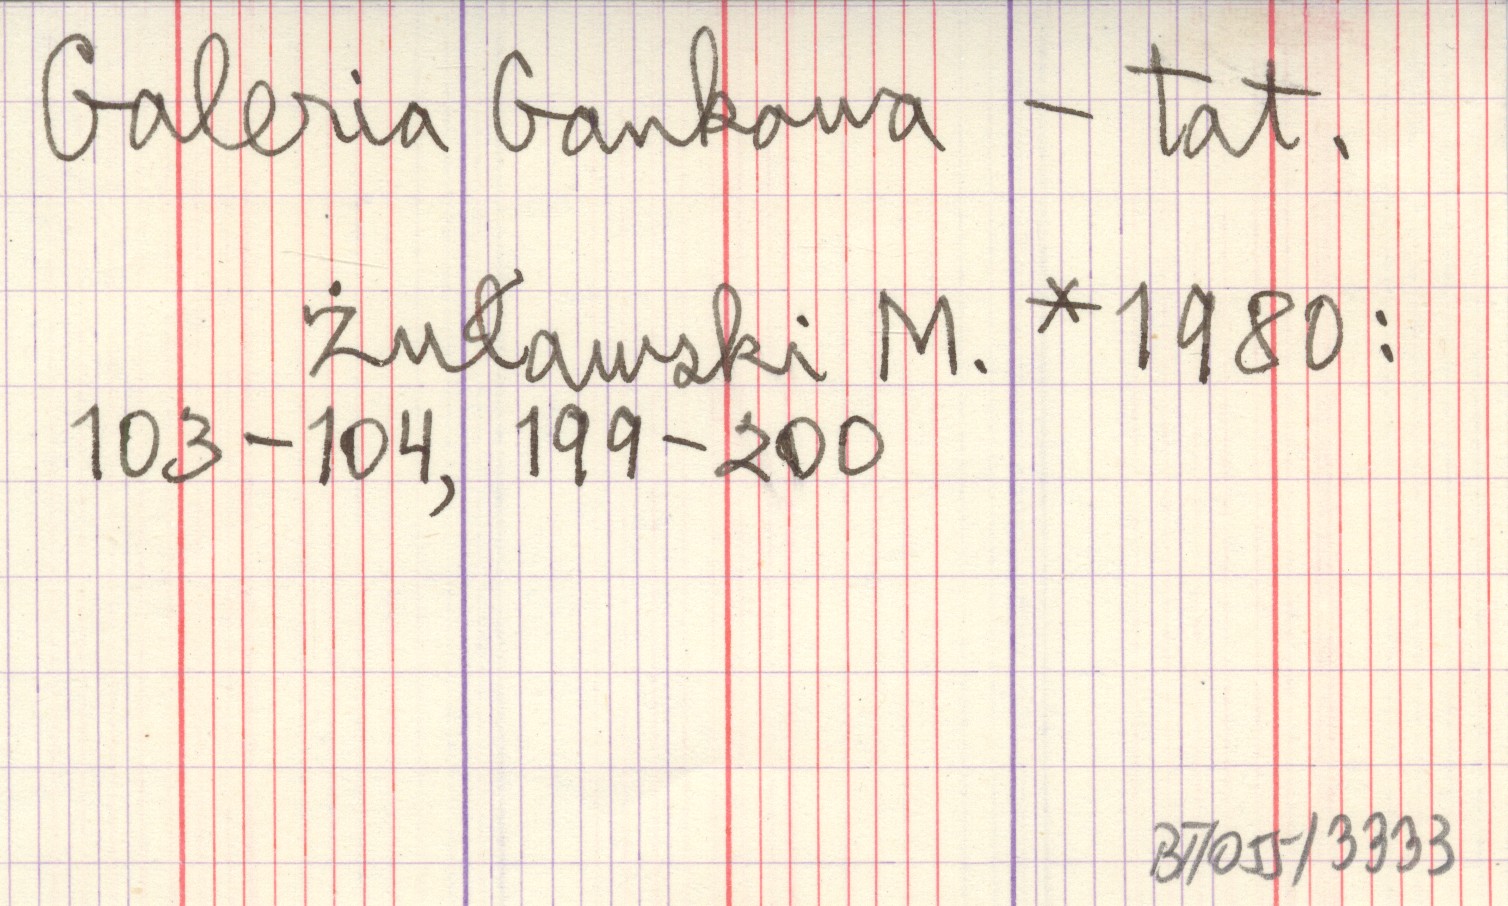 Galeria Gankowa – tat.
Żuławski M. *1980:
103–104, 199–200
BT/055/3333